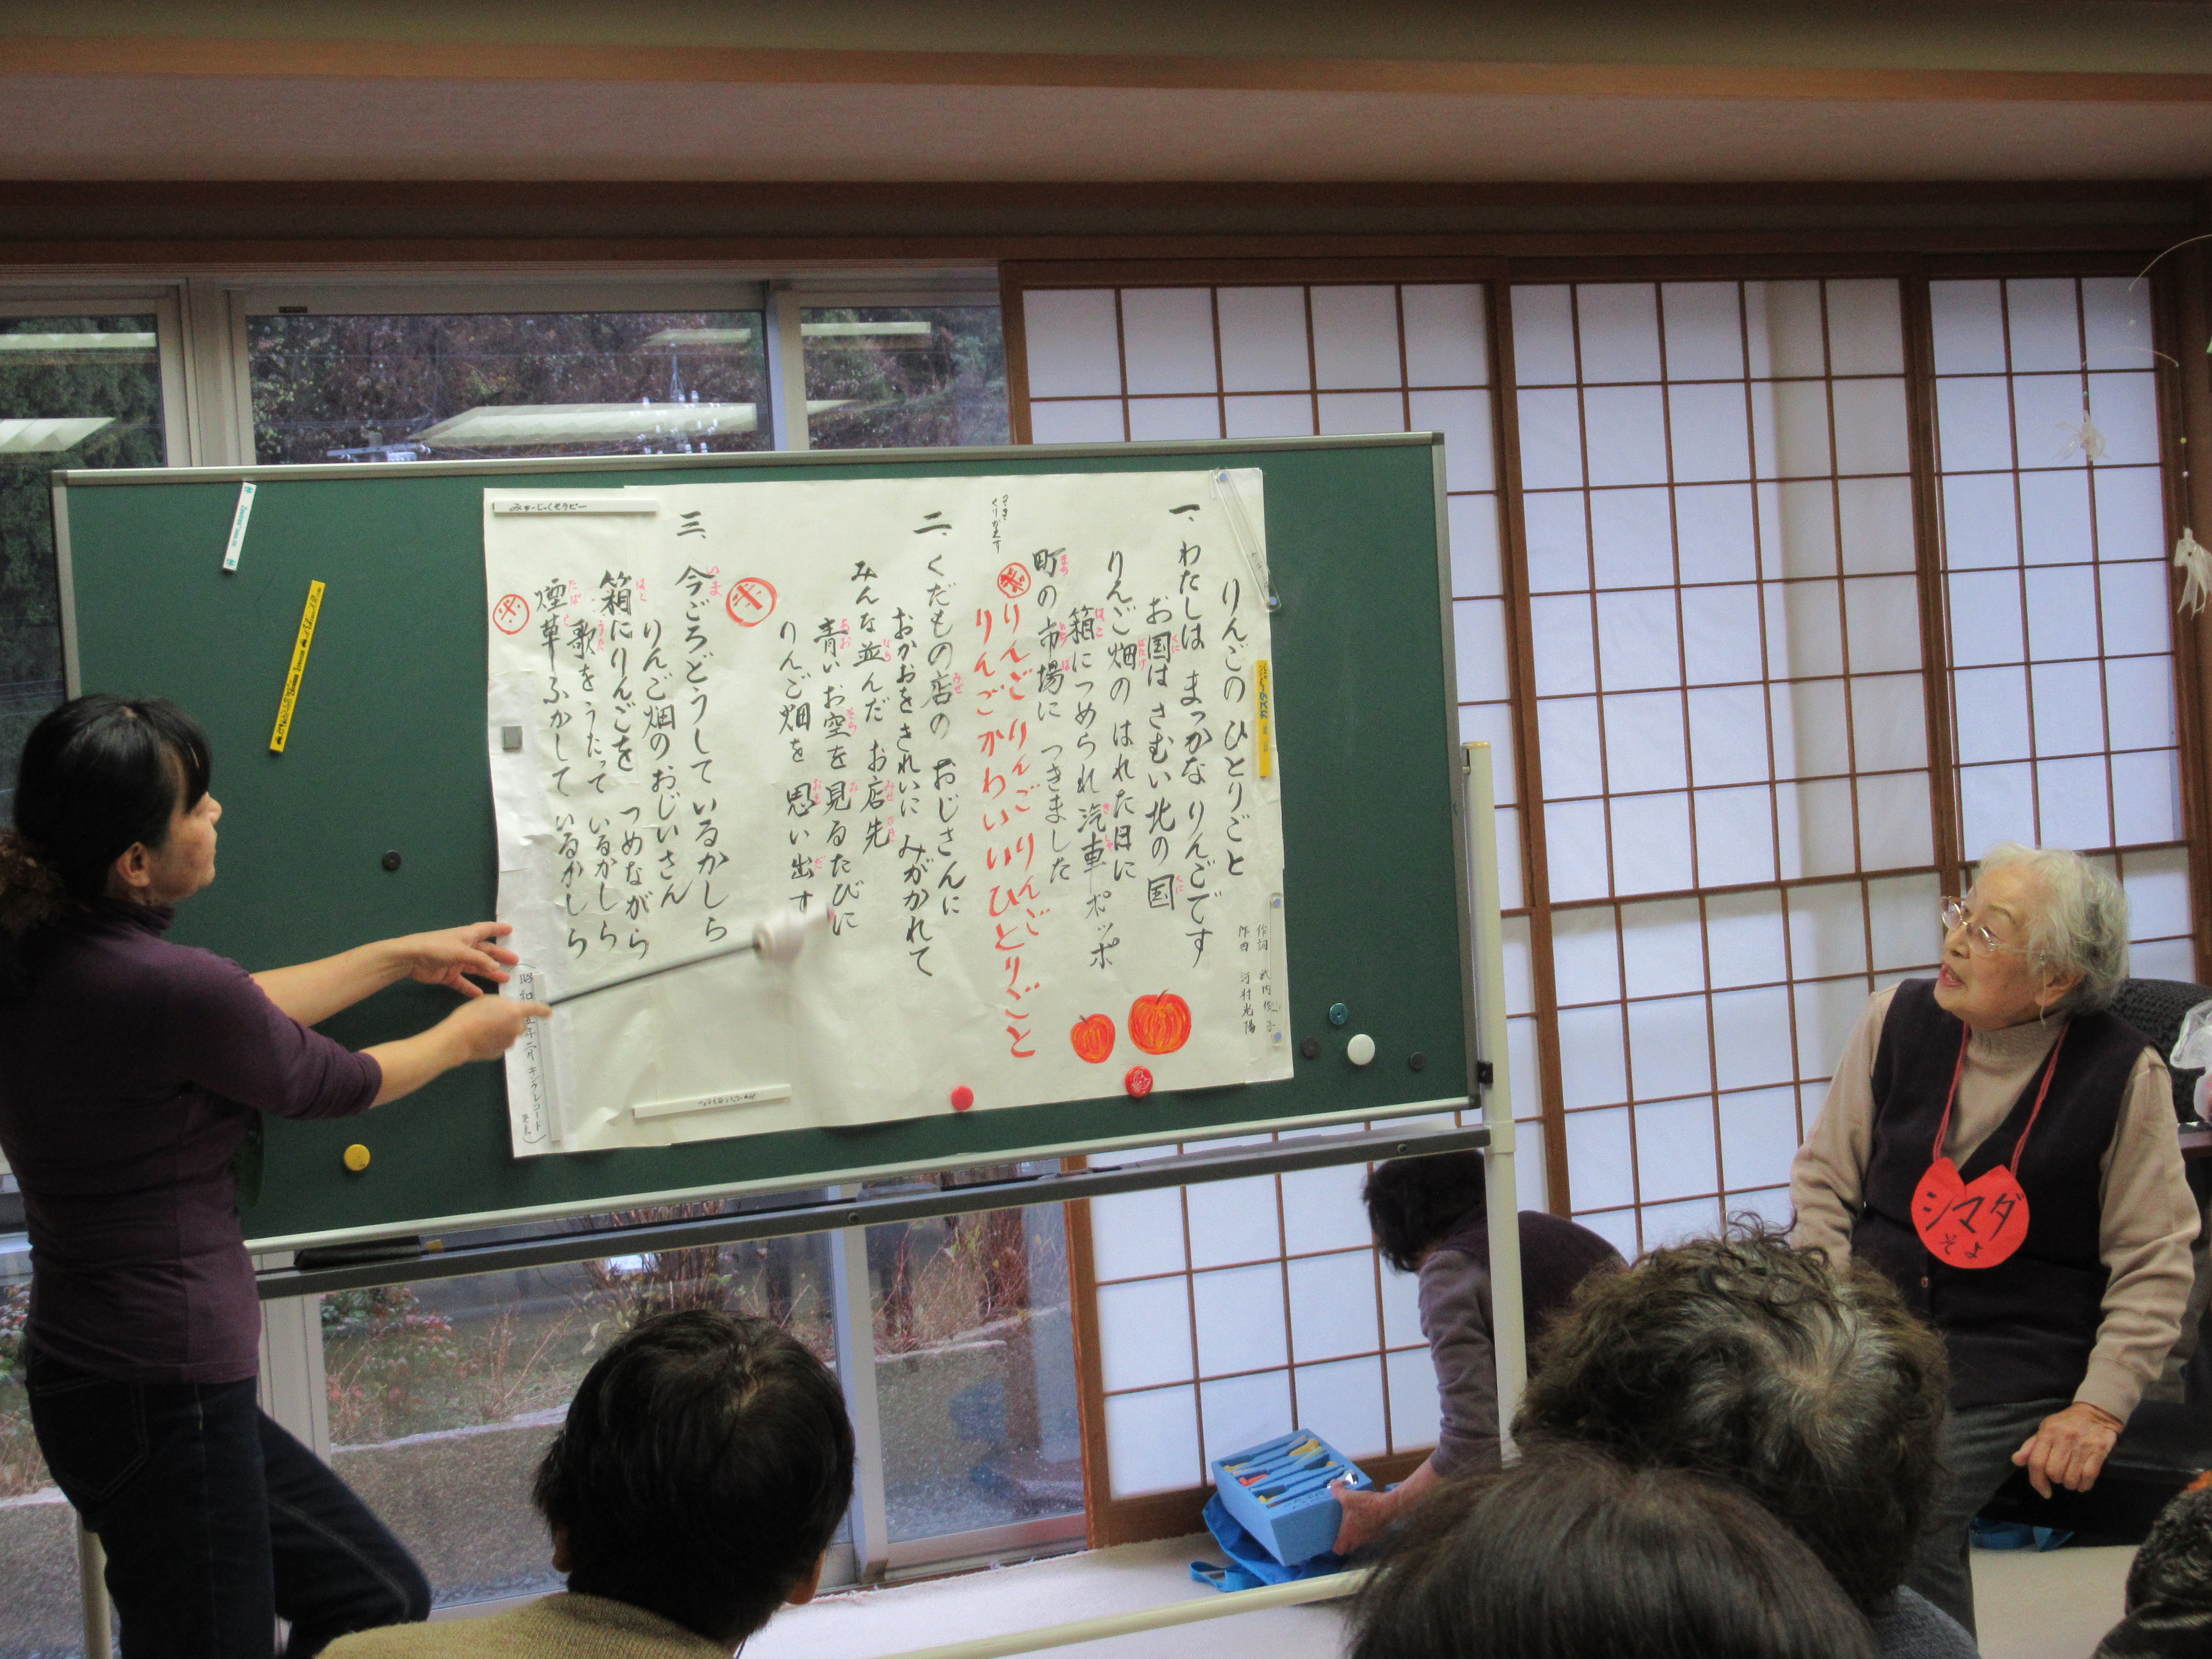 りんごの ひとりごと
作詞 武内俊子
作曲 河村光陽
一、わたしは まっかな りんごです
お国は さむい 北の国
りんご畑の はれた日に
箱につめられ 汽車 ポッポ
町の市場に つきました
りんご りんご りんご
りんごかわいい ひとりごと
くりかえす
二、くだもの店の おじさんに
おかおをきれいに みがかれて
みんな並んだ お店先
青い お空を 見るたびに
りんご畑を 思い出す
三、今ごろどうして いるかしら
りんご畑の おじいさん
箱にりんごを つめながら
歌をうたって いるかしら
煙草ふかして いるかしら
みゅーじっくせらぴー
シマダ
そよ